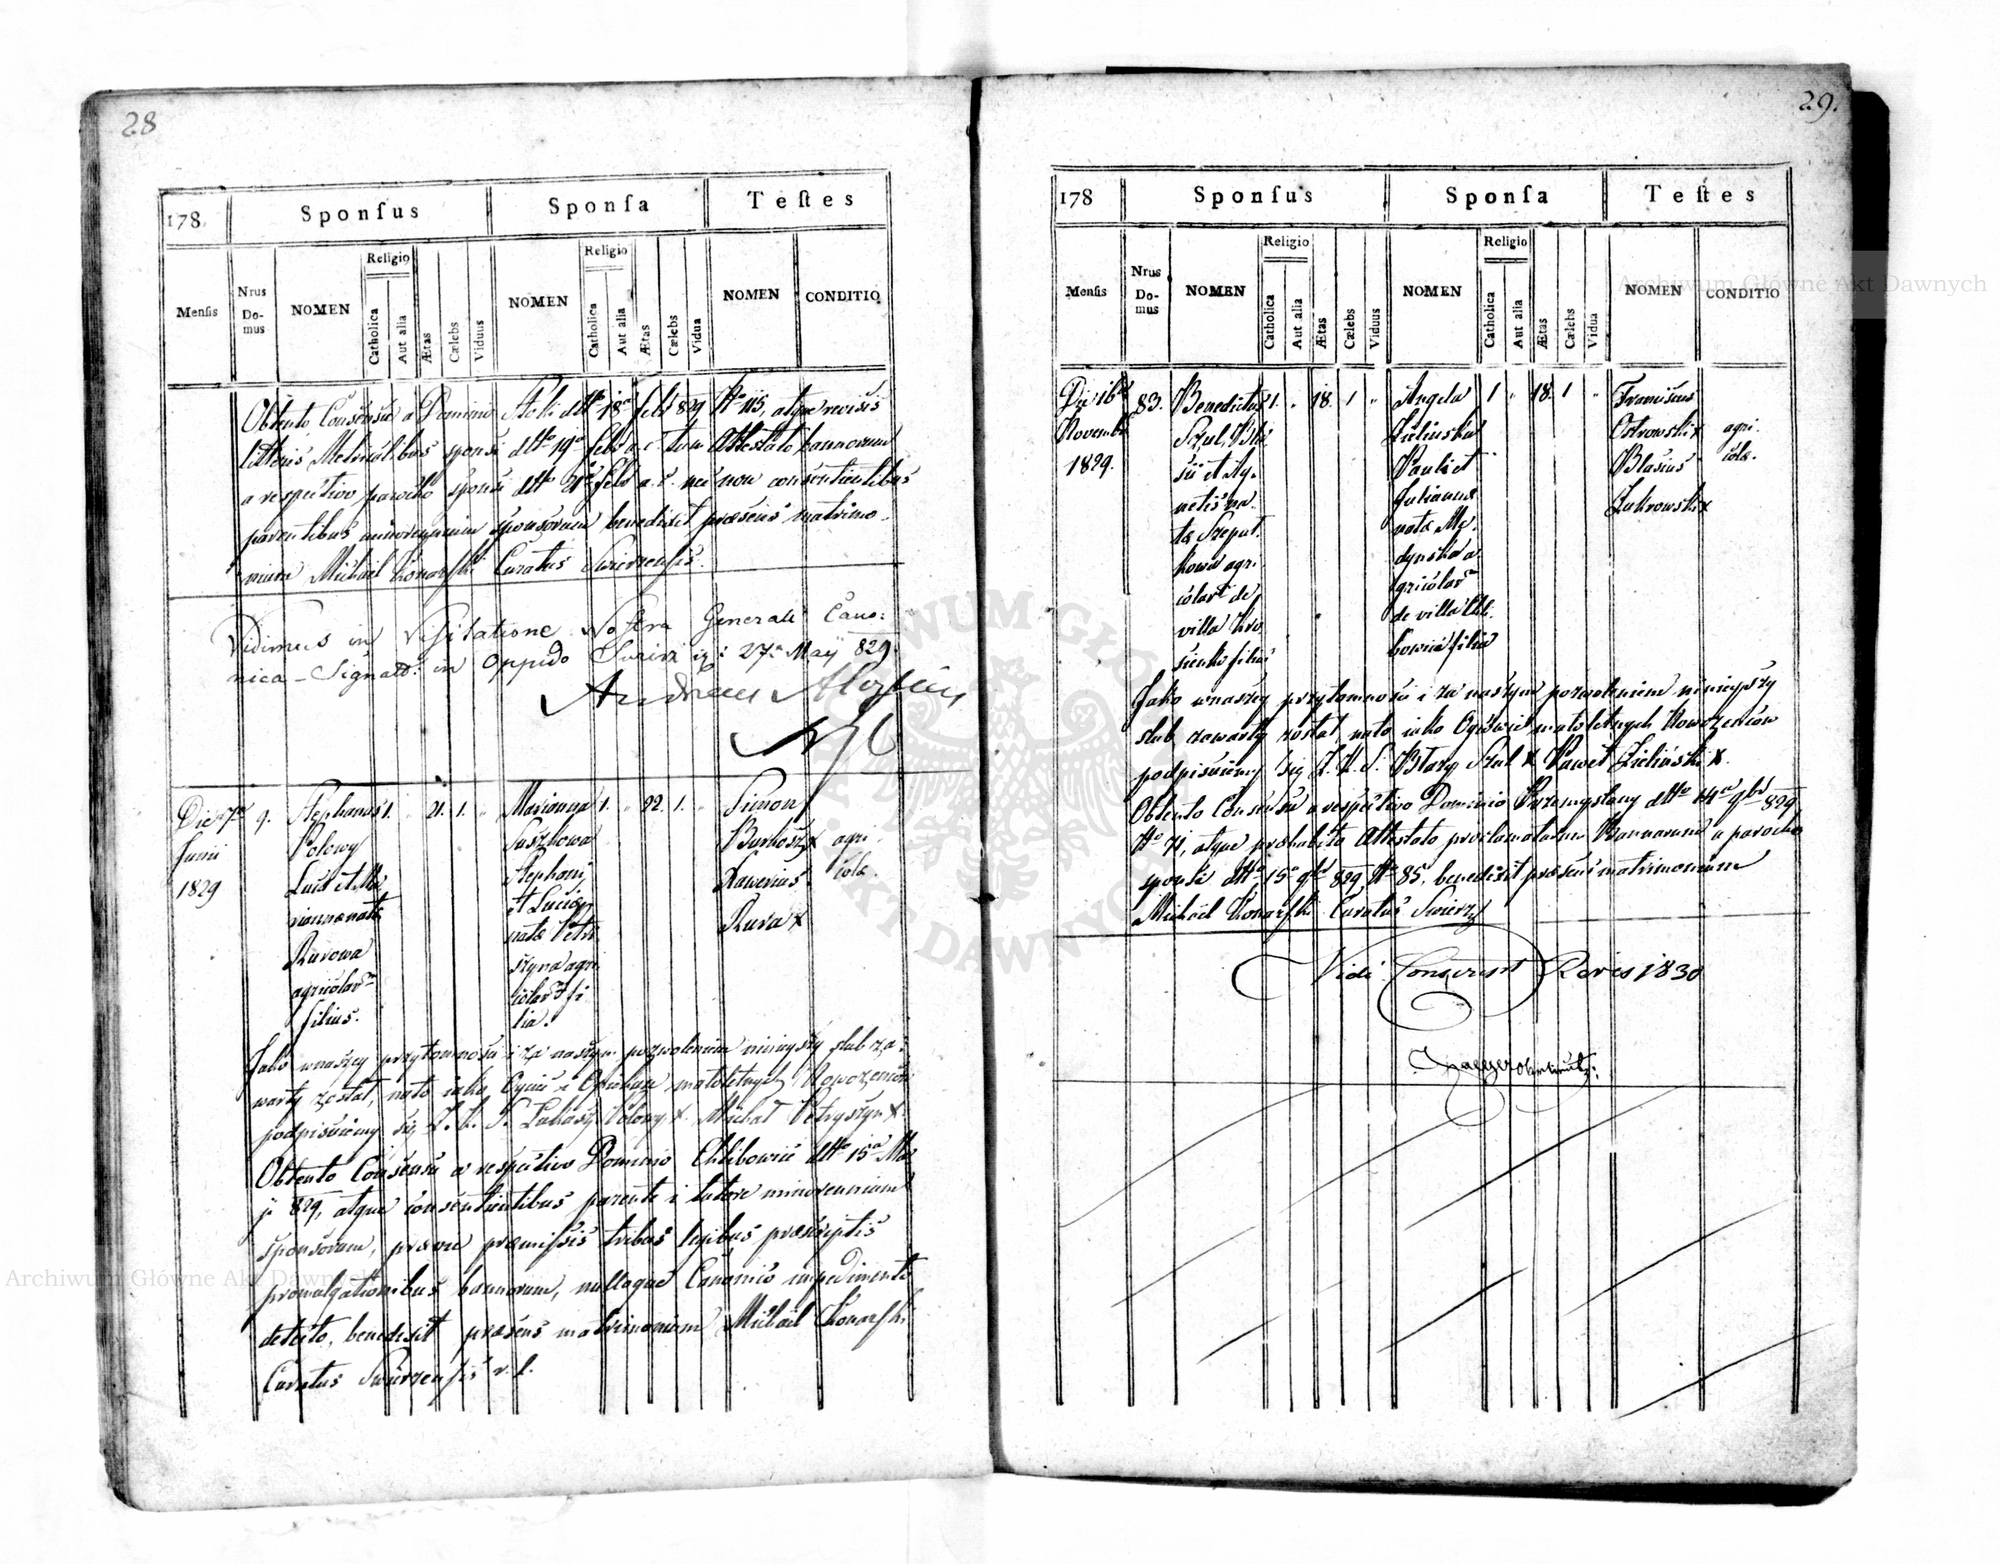 28
178.
Sponsus
Sponsa
Testes
Mensis
Nrus Do-mus
NOMEN
Religio
Catholica
Aut alia
Ætas
Cœlebs
Viduus
NOMEN
Religio
Catholica
Aut alia
Ætas
Cœlebs
Vidua
NOMEN
CONDITIO
Obtento Consensu a Dominio dtto 18ª feb 829 Nº 115, atque revisis
litteris Metricalibus sponsi dtto 19ª feb a. c. tum Attestato bannorum
a respectivo parocho sponsi dtto feb a. c. nec non consentientibus
parentibus minorennium sponsorum benedixit præsens matrimo-
nium Michael Konarski Curatus Swirzensis.
Vidimus in Visitatione Nostra Generali Cano:
nica - Signatt: in Oppido 27ª Maij 829.
Andreas Aloysius
Die 7ª
Junii
1829
9.
Stephanus
Polowy
Lucæ et Ma
riannæ natæ
Rurowa
agricolarum
filius.
1. " 21. 1. "
Marianna
Suszkowa
Stephani
et Luciæ
natæ Petry
szyna agri
colarum fi
lia.
1. " 22. 1. "
Simon
Burkosz x
Xawerius
Rura x
agri.
colæ.
Jako w naszey przytomności i za naszym pozwoleniem ninieyszy slub za:
warty został, na to iako Oyciec i Opiekun małoletnych Nowozeńców
podpisuiemy się Z. K. S. Łukasz Polowy x. Michał Petryszyn x
Obtento Consensu a respectivo Dominio Chlibowice dtto 15ª Ma
ji 829, atque consentientibus parente i tutore minorennium
sponsorum, prævie præmissis tribus legibus præscriptis
promulgationibus bannorum, nulloque Canonico impedimento
detecto, benedixit præsens matrimonium Michael Konarski
Curatus Swirzensis
29.
178
Sponsus
Sponsa
Testes
Mensis
Nrus Do-mus
NOMEN
Religio
Catholica
Aut alia
Ætas
Cœlebs
Viduus
NOMEN
Religio
Catholica
Aut alia
Ætas
Cœlebs
Vidua
NOMEN
CONDITIO
Die 16ª
Novembr
1829.
83.
Benedictus
Szul, Bla
sii et Ag-
netis na-
tæ Szeput-
kowa agri
colarum de
villa Kro
sienko filius
1. " 18. 1 "
Angela
Zielinska
Pauli et
Julianna
natæ Me-
dynska a
gricolarum
de villa Chli
bowice filia
1 " 18. 1 "
Franciscus
Ostrowski x
Blasius
Zukrowski x
agri.
colæ.
Jako w naszey przytomności i za naszym pozwoleniem ninieyszy
slub zawarty został, na to iako Oycowie małoletnych Nowozeńców
podpisuiemy się Z. K. S. Błazy Szul x Paweł Zieliński x.
Obtento Consensu a respectivo Dominio Przemyslany dtto 14ª 9br 829
Nº 71, atque præhabito Attestato proclamatarum Bannorum a parocho
sponsi dtto 15ª 9br 829 Nº 85. benedixit præsens matrimonium
Michael Konarski Curatus Swirzs
Vidi 1830
Archiwum Główne Akt Dawnych
Archiwum Główne Akt Dawnych
ARCHIWUM GŁÓWNE AKT DAWNYCH